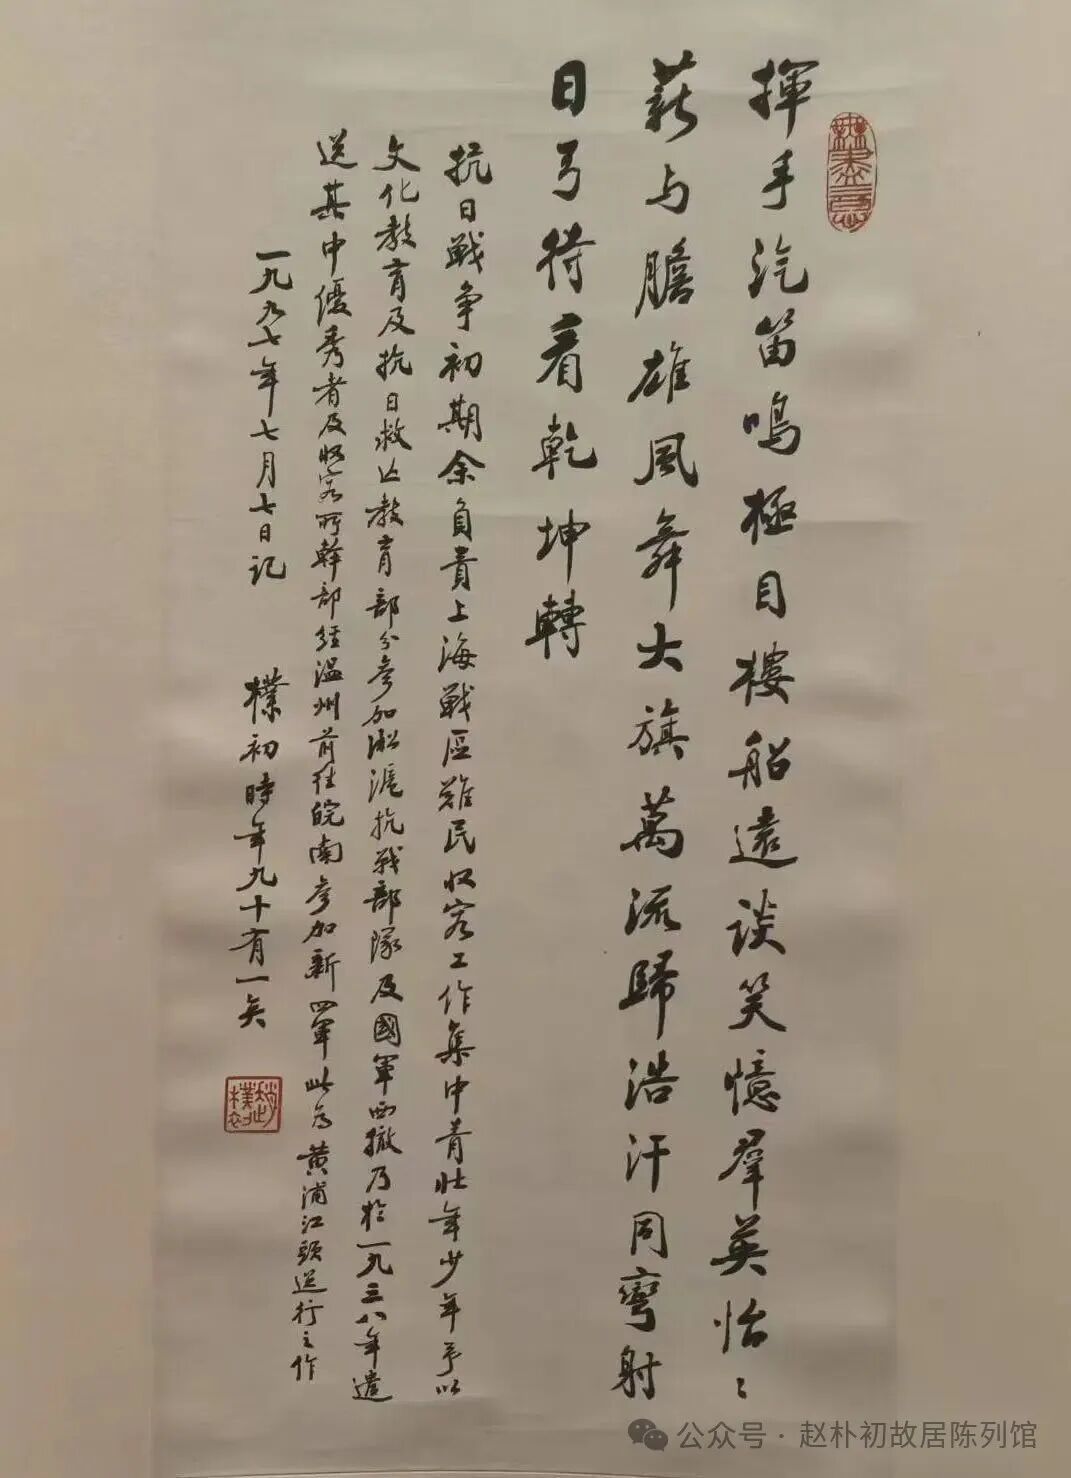 揮手汽笛鳴極目樓船遠談笑憶羣英怡〻
薪与膽雄風舞大旗萬流歸浩汗同彎射
日弓待看乾坤轉
抗日戰争初期余負責上海戰区難民收容工作集中青壯年少年予以
文化教育及抗日救亡教育部分参加淞滬抗战部隊及國軍西撤乃於一九三八年遣
送其中優秀者及收容所幹部経温州前往皖南参加新四軍此为黄浦江頭送行之作
一九九七年七月七日记
樸初時年九十有一矣
趙樸初
公众号·赵朴初故居陈列馆